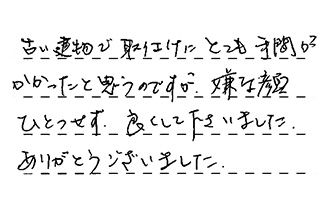 古い建物で取付けにとても手間が
かかったと思うのですが、嫌な顔
ひとつせず、良くして下さいました。
ありがとうございました。